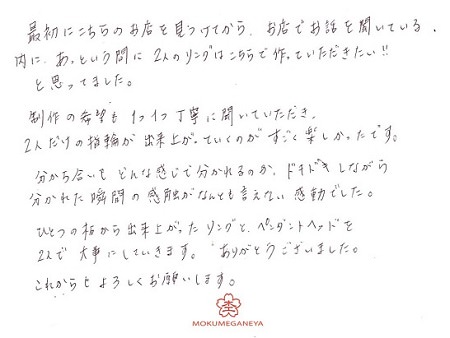 最初にこちらのお店を見つけてから、お店でお話を聞いている
内に、あっという間に2人のリングはこちらで作っていただきたい!!
と思ってました。
制作の希望も1つ1つ丁寧に聞いていただき、
2人だけの指輪が出来上がっていくのがすごく楽しかったです。
分かち合いも どんな感じで分かれるのか、ドキドキしながら
分かれた瞬間の感触がなんとも言えない感動でした。
ひとつの板から出来上がったリングと、ペンダントヘッドを
2人で大事にしていきます。ありがとうございました。
これからもよろしくお願いします。
MOKUMEGANEYA